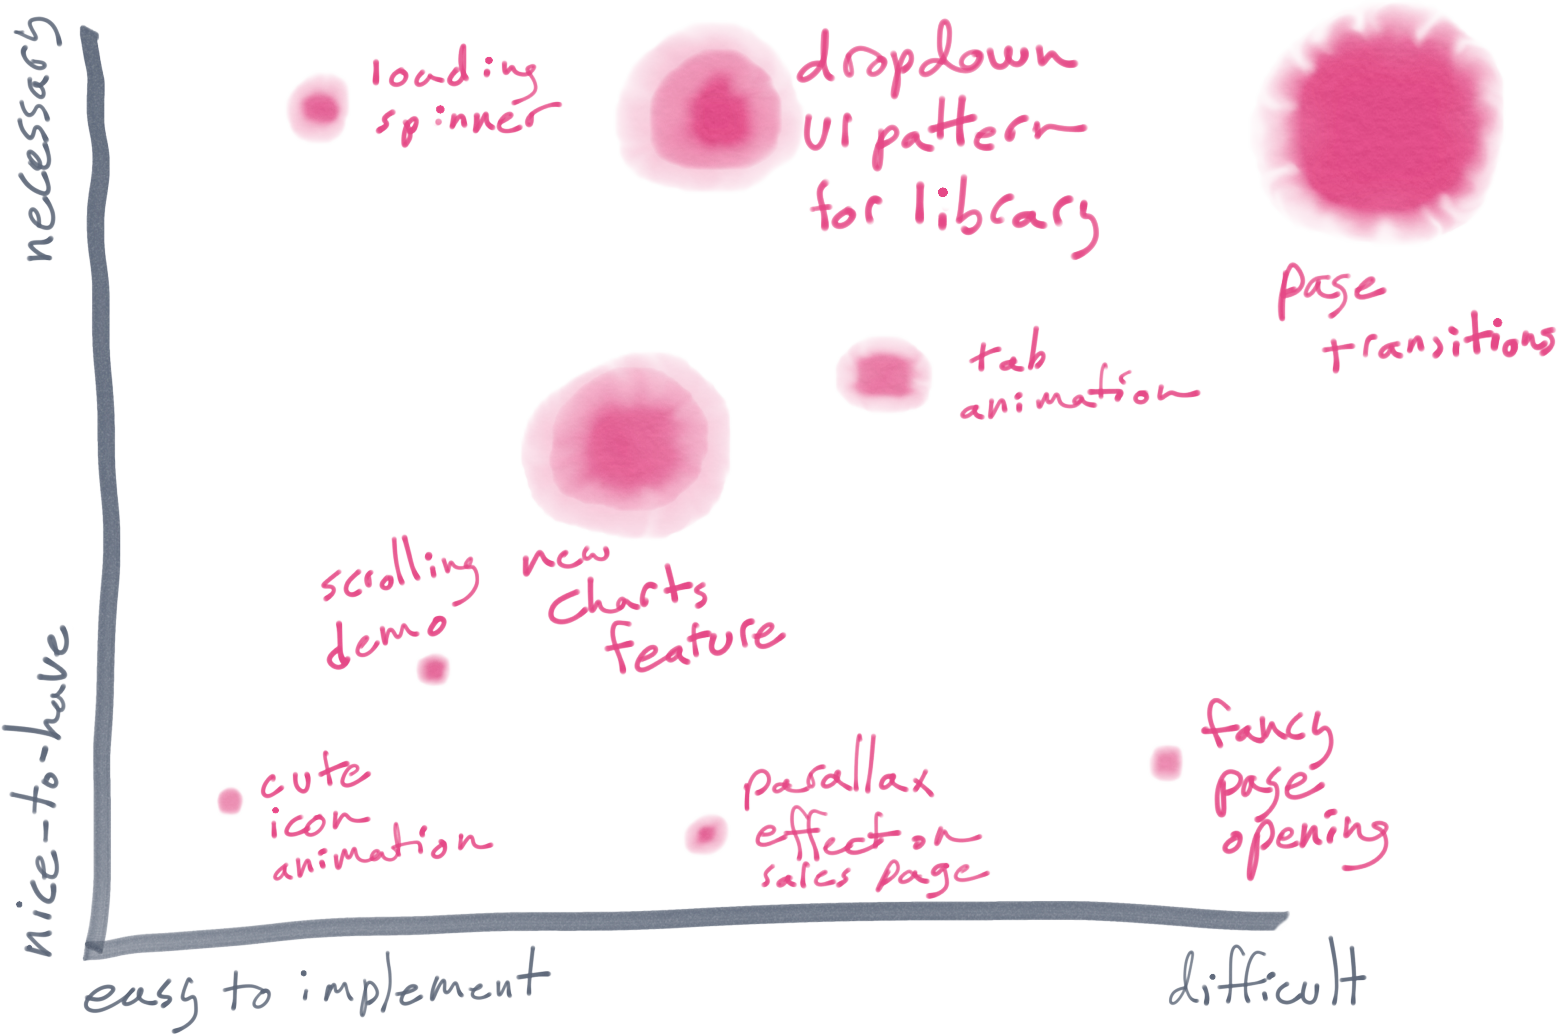 necessary
loading
spinner
dropdown
UI pattern
for library
page
transitions
tab
animation
new
charts
feature
scrolling
demo
nice-to-have
cute
icon
animation
parallax
effect on
sales page
fancy
page
opening
easy to implement
difficult